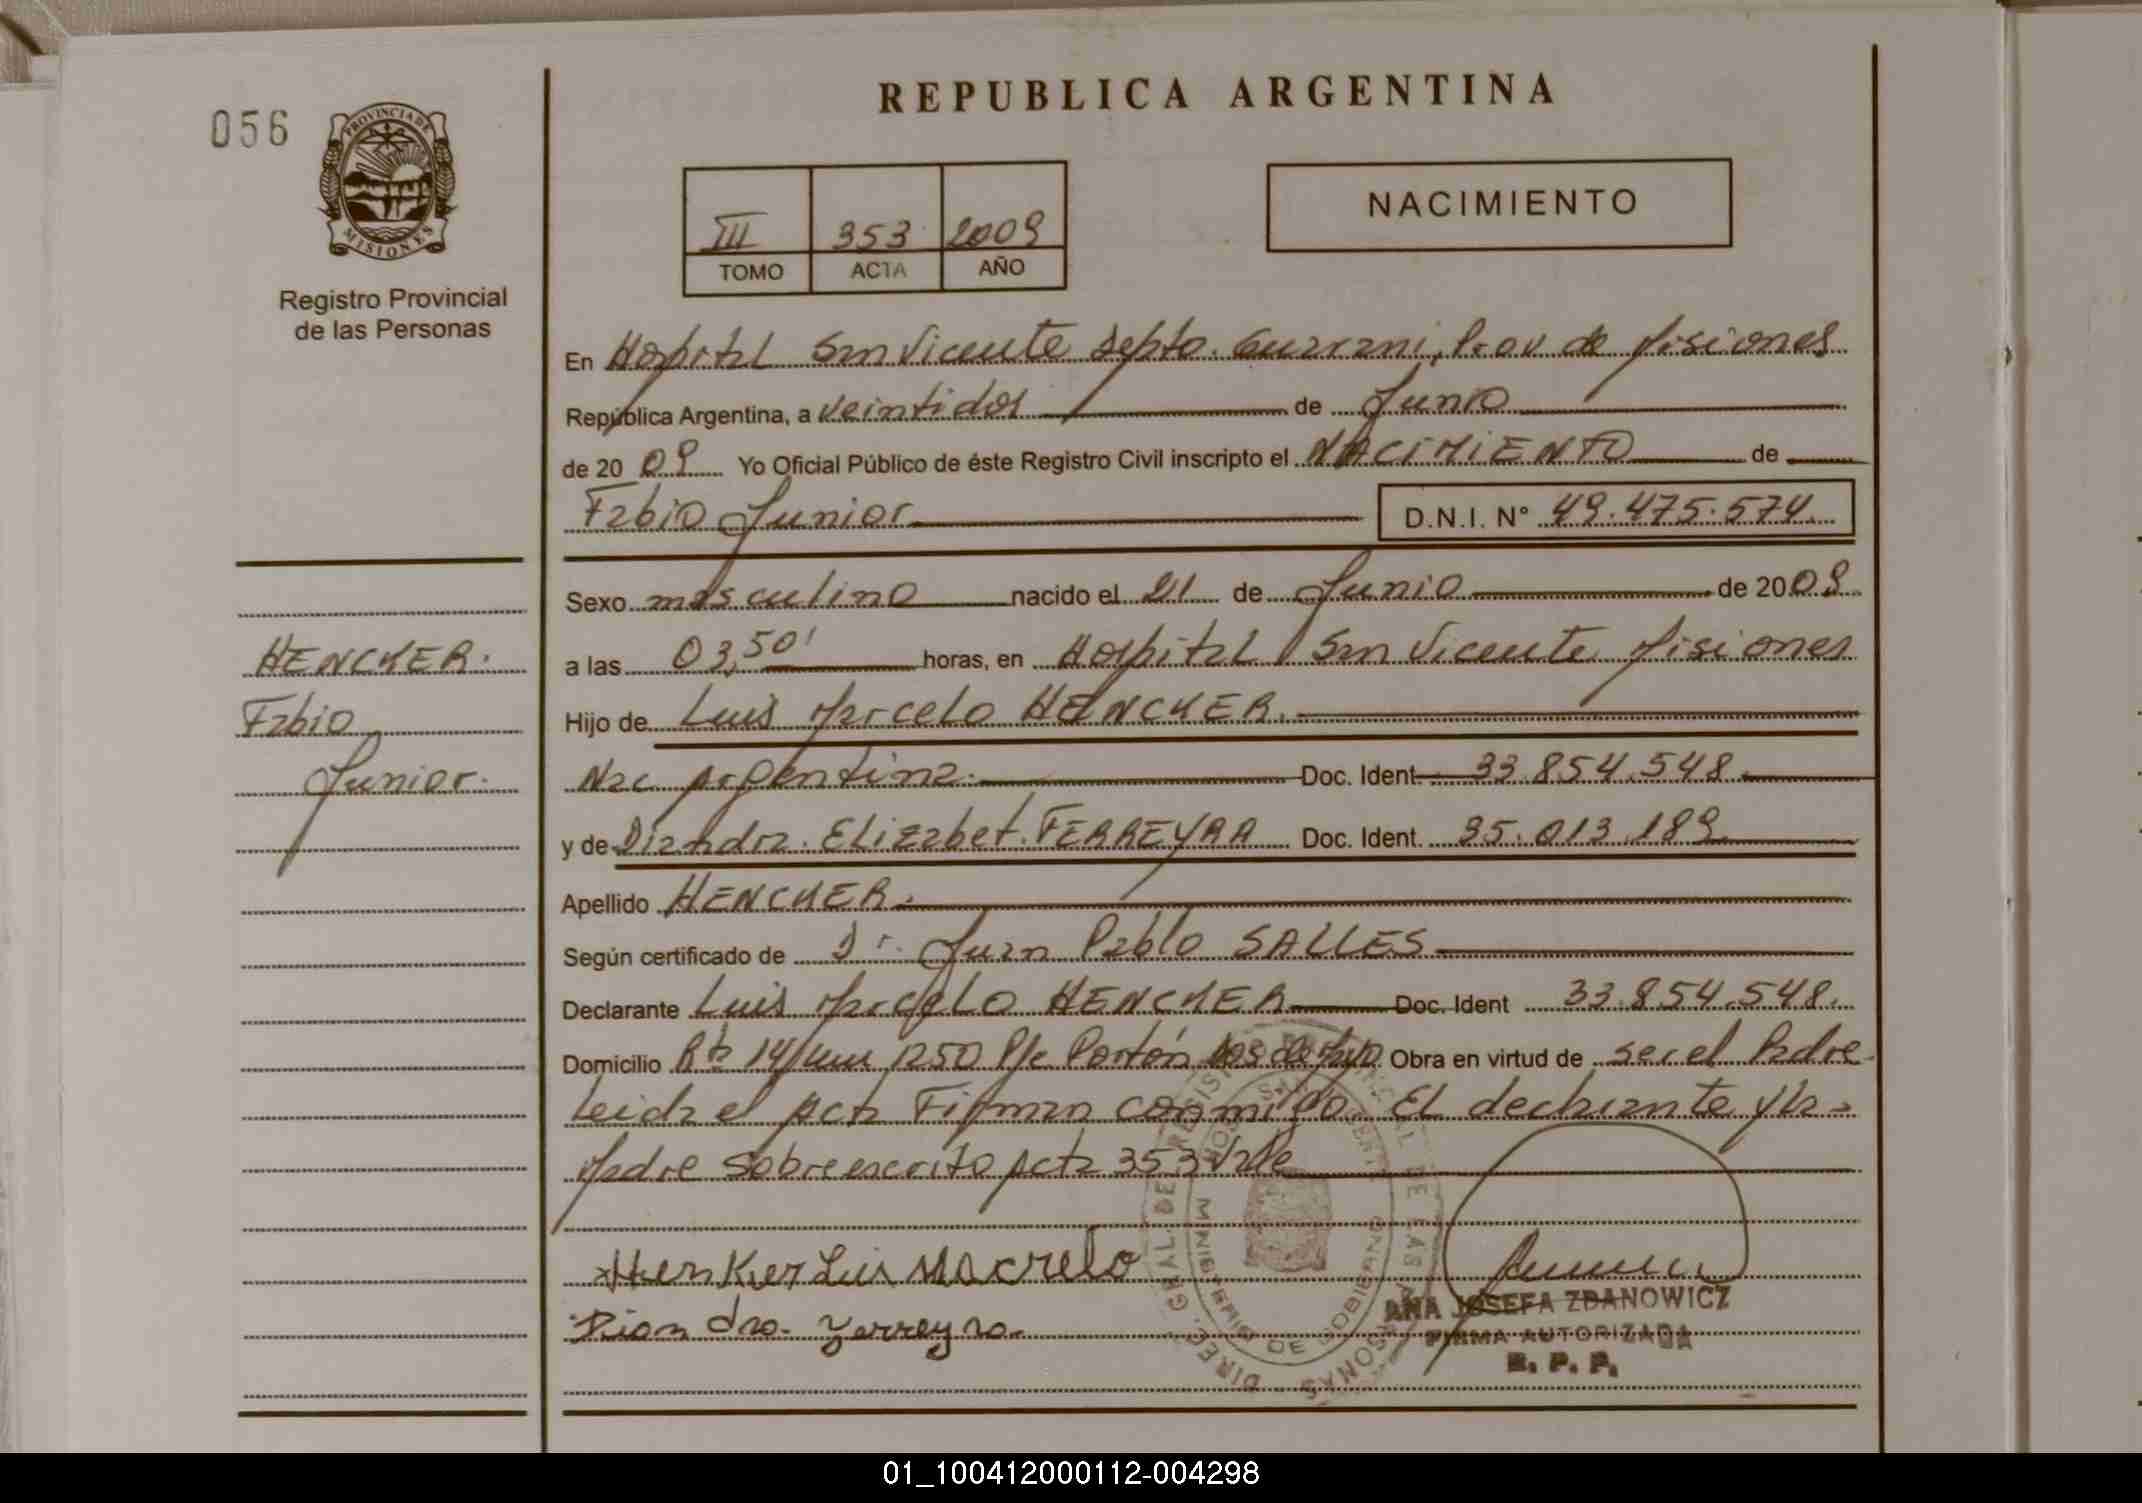 056
PROVINCIA DE
MISIONES
Registro Provincial
de las Personas
HENCKER.
Fabio
Junior.
REPUBLICA ARGENTINA
III 353 2009
TOMO ACTA AÑO
NACIMIENTO
En Hospital San Vicente Depto. Guarani, Prov de Misiones
República Argentina, a veintidos de Junio
de 2009 Yo Oficial Público de éste Registro Civil inscripto el NACIMIENTO de
Fabio Junior D.N.I. N° 49.475.574
Sexo masculino nacido el 21 de Junio de 2009
a las 03,50' horas, en Hospital San Vicente Misiones
Hijo de Luis Marcelo HENCKER.
Nac Argentina. Doc. Ident. 33.854.548
y de Diandra. Elizabet. FERREYRA Doc. Ident. 35.013.189
Apellido HENCKER.
Según certificado de Dr. Juan Pablo SALLES
Declarante Luis Marcelo HENCKER Doc. Ident 33.854.548.
Domicilio Rta 14 km 1250 Pje Portón Obra en virtud de ser el Padre
Leida el Acta Firman conmigo. El declarante y la
Madre Sobreescrito Acta 353 Vale
Henker Luis Macrelo
Diandra. Ferreyra.
DIREC. GRAL. DE REGISTRO PROVINCIAL DE LAS PERSONAS
MINISTERIO DE GOBIERNO
ANA JOSEFA ZDANOWICZ
FIRMA AUTORIZADA
R. P. P.
01_100412000112-004298